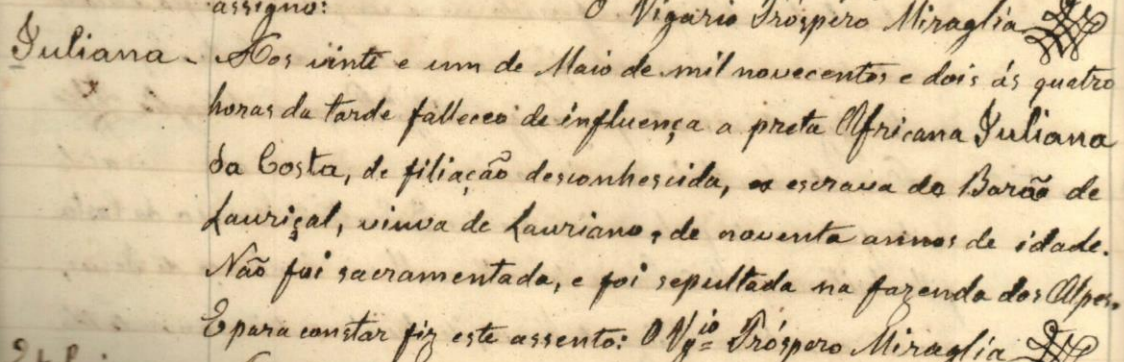 assigno: O Vigario Próspero Miraglia
Juliana - Aos vinte e um de Maio de mil novecentos e dois ás quatro
horas da tarde falleceo de influença a preta Africana Juliana
da Costa, de filiação desconhescida, ex escrava do Barão de
Lauriçal, viuva de Lauriano, de noventa annos de idade.
Não foi sacramentada, e foi sepultada na fazenda dos Alpes.
E para constar fiz este assento: O Vg.io Próspero Miraglia